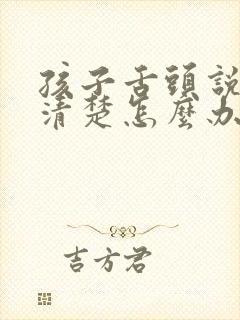 孩子舌頭說
清楚怎麼办
吉方君